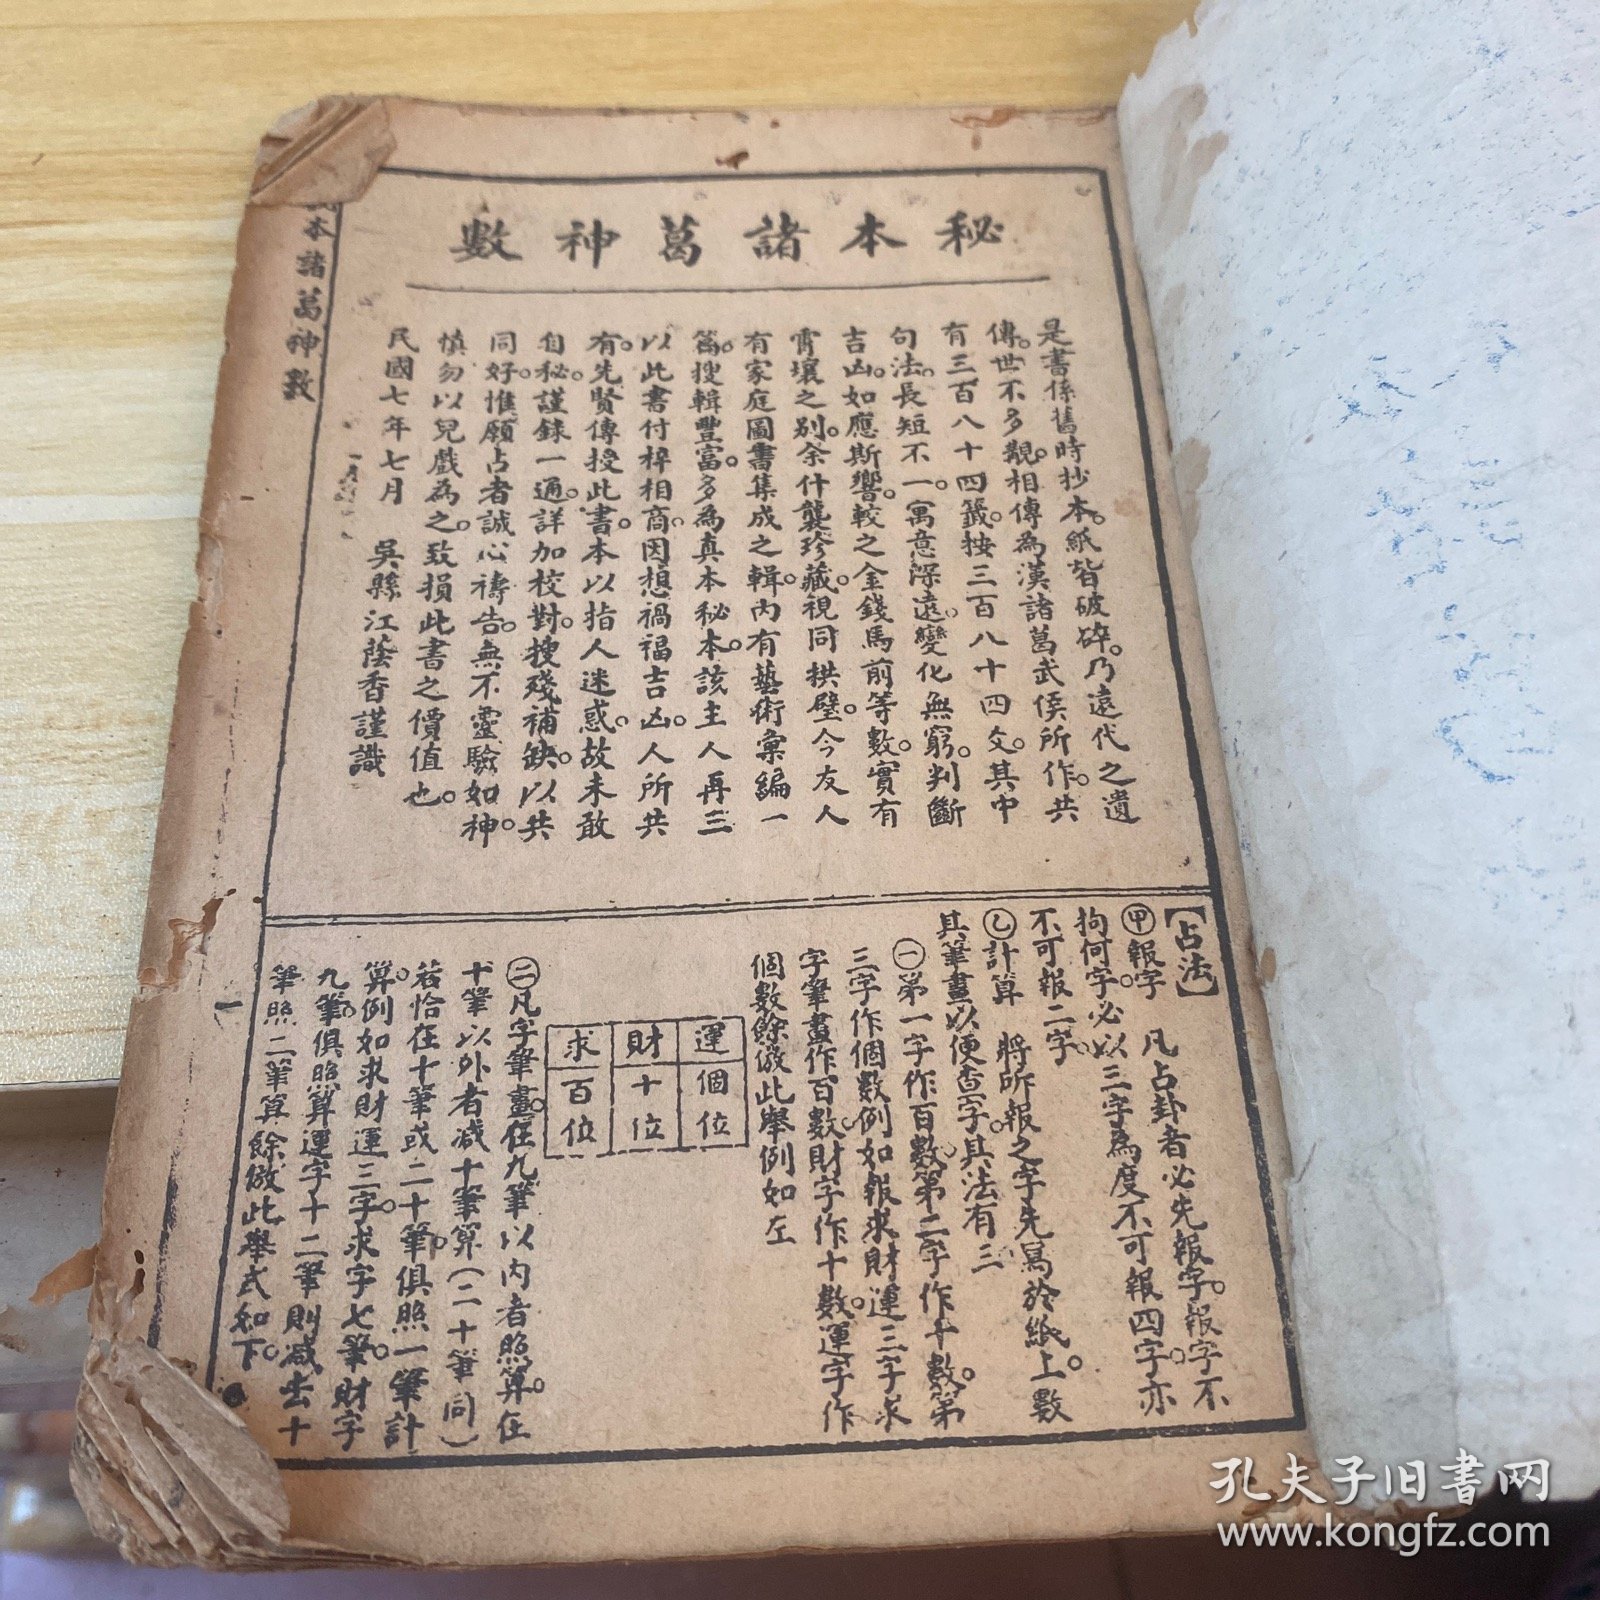 秘本諸葛神數
是書係舊時抄本。紙皆破碎。乃遠代之遺
傳。世不多覯。相傳為漢諸葛武侯所作。共
有三百八十四籤。按三百八十四爻。其中
句法。長短不一。寓意深遠。變化無窮。判斷
吉凶。如應斯響。較之金錢馬前等數。實有
霄壤之别。余什襲珍藏。視同拱璧。今友人
有家庭圖書集成之輯。内有藝術彙編一
篇。搜輯豐富。多為真本秘本。該主人再三
以此書付梓相商。因想禍福吉凶。人所共
有。先賢傳授此書。本以指人迷惑。故未敢
自秘。謹錄一通。詳加校對。搜殘補缺。以共
同好。惟願占者誠心禱告。無不靈驗如神。
慎勿以兒戲為之。致損此書之價值也。
民國七年七月 吳縣江蔭香謹識
【占法】
㊙甲報字 凡占卦者必先報字。報字不
拘何字。必以三字為度。不可報四字。亦
不可報二字。
乙計算 將所報之字先寫於紙上。數
其筆畫以便查字。其法有三
㊀第一字作百數。第二字作十數。第
三字作個數。例如報求財運三字。求
字筆畫作百數。財字作十數。運字作
個數。餘倣此。舉例如左
運 財 求
個位 十位 百位
㊁凡字筆畫。在九筆以内者照算。在
十筆以外者减十筆算(二十筆同)
若恰在十筆或二十筆。俱照一筆計
算。例如求財運三字。求字七筆。財字
九筆。俱照算。運字十二筆。則减去十
筆。照二筆算。餘倣此。舉式如下。
本諸葛神數
一
孔夫子旧书网
www.kongfz.com